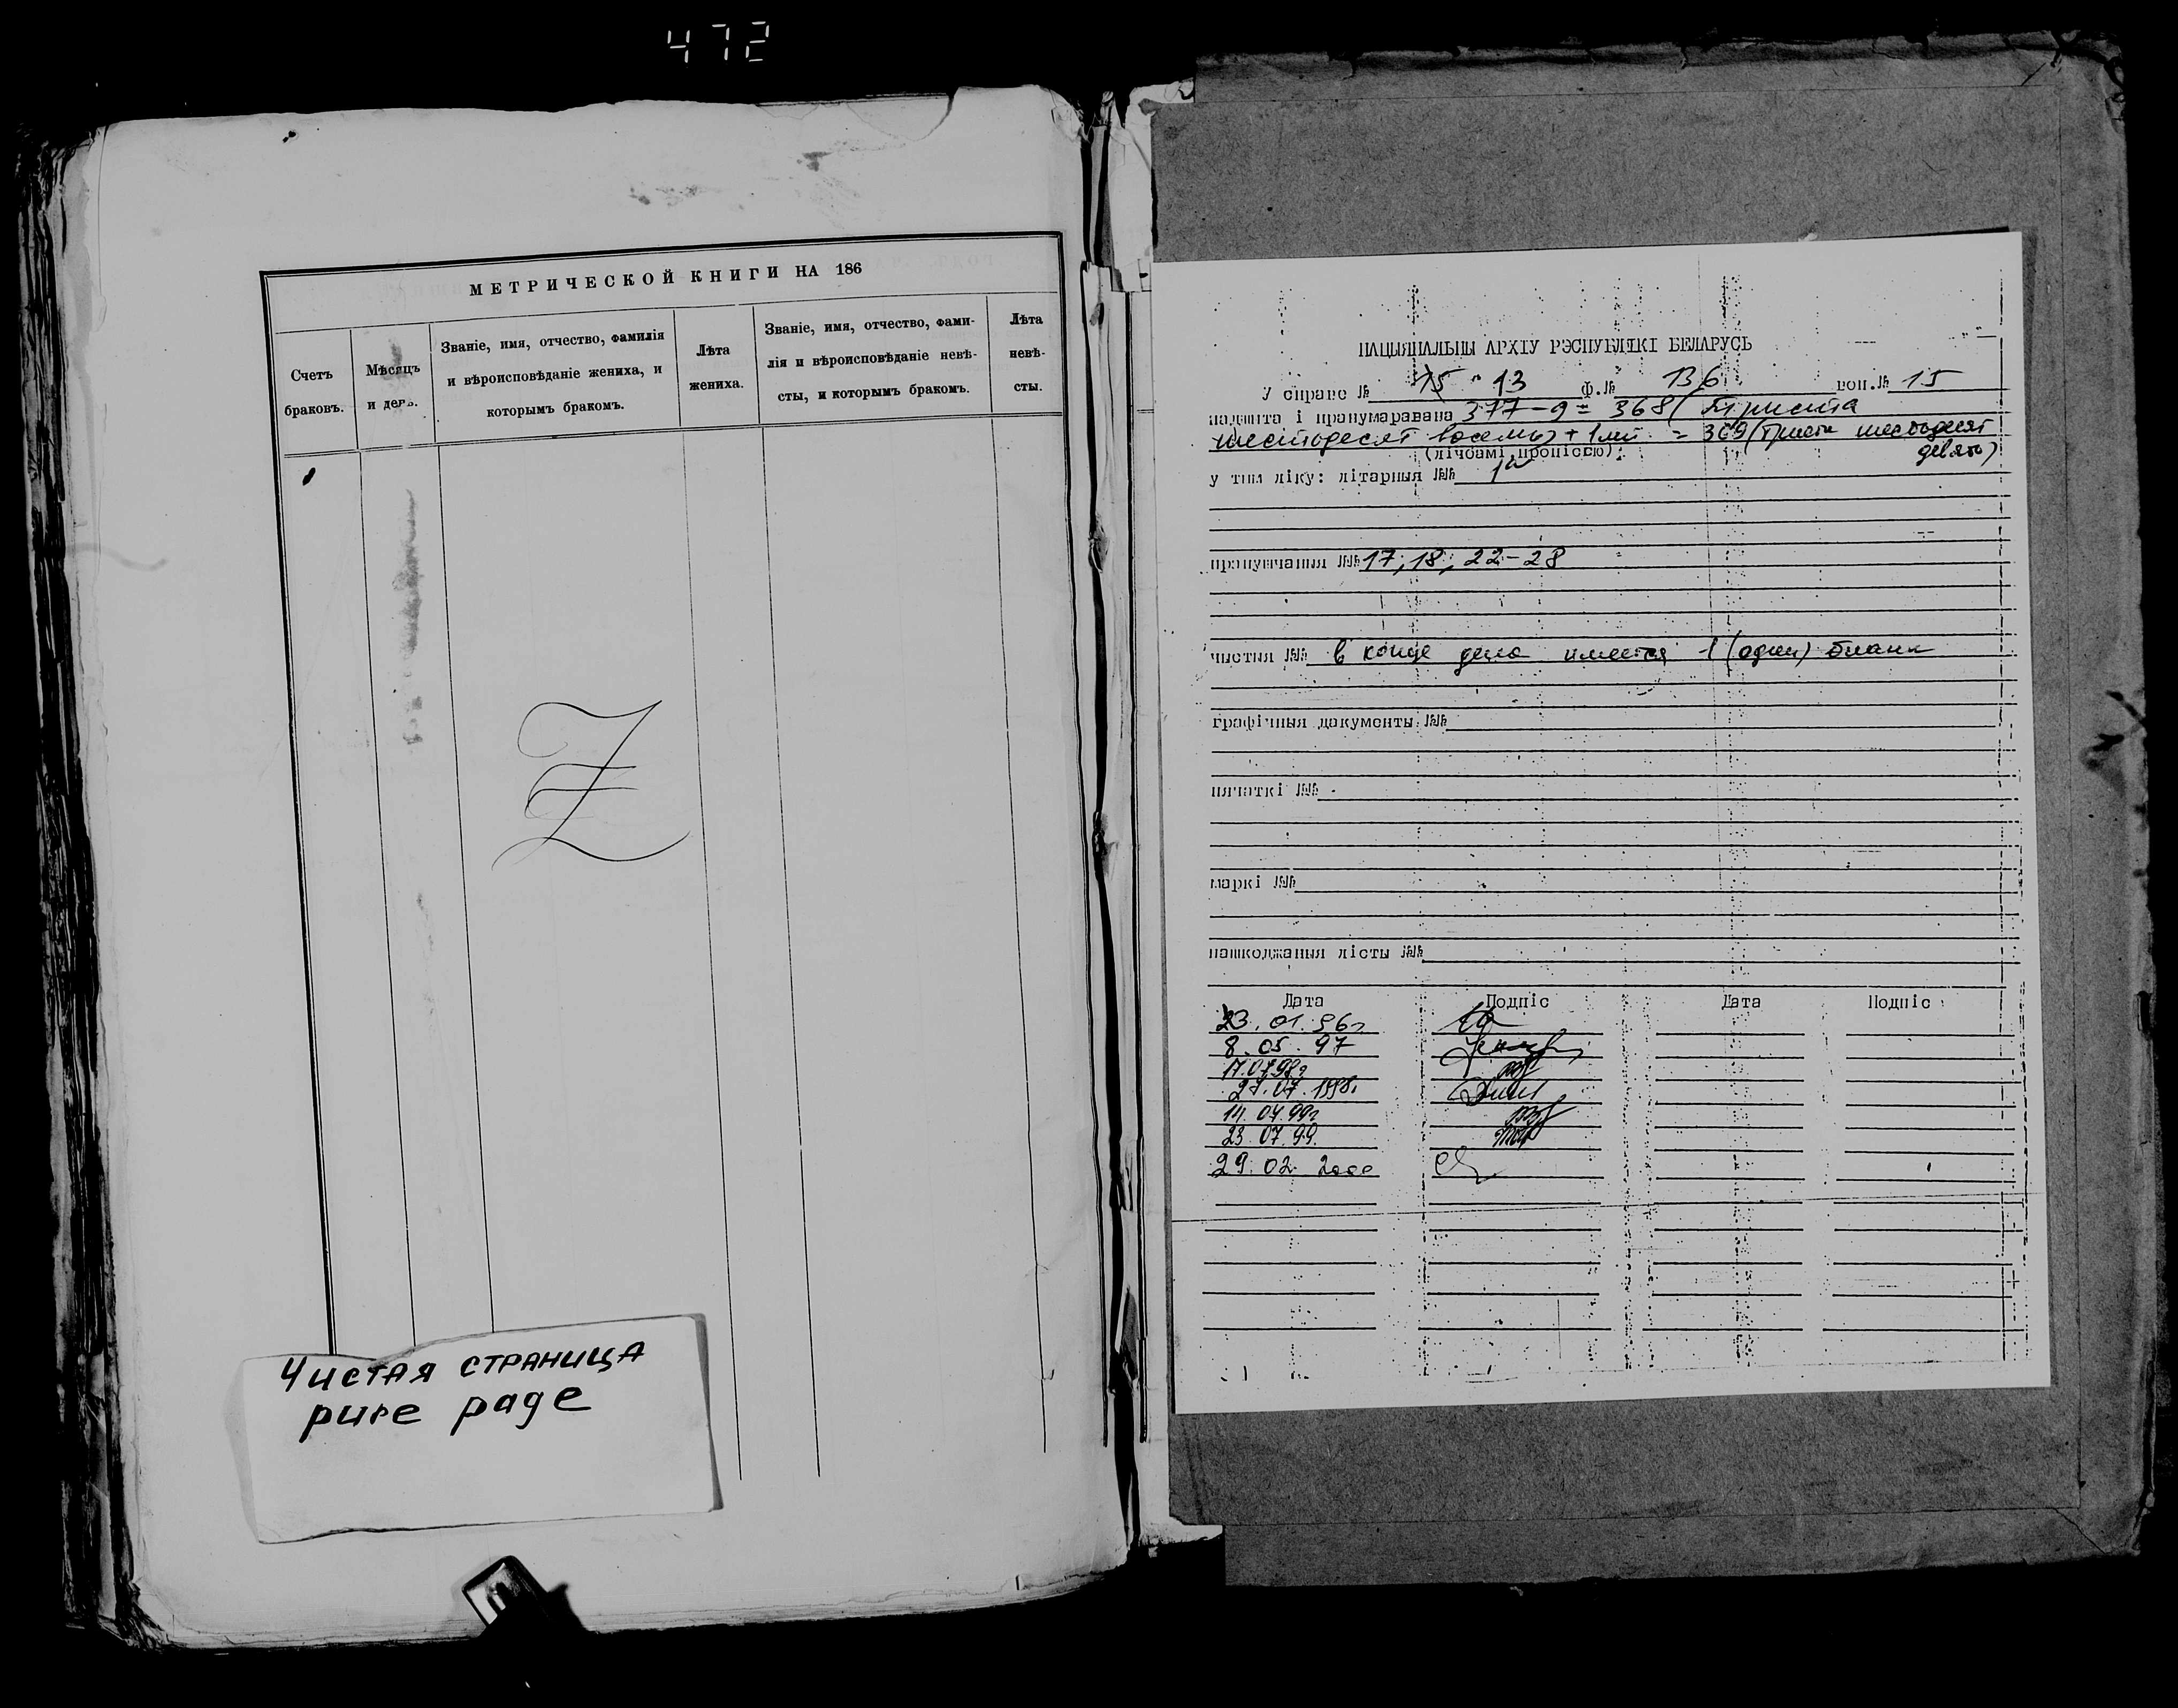 472
МЕТРИЧЕСКОЙ КНИГИ НА 186
Счетъ
браковъ.
Мѣсяцъ
и день.
Званіе, имя, отчество, фамилія
и вѣроисповѣданіе жениха, и
которымъ бракомъ.
Лѣта
жениха.
Званіе, имя, отчество, фами-
лія и вѣроисповѣданіе невѣ-
сты, и которымъ бракомъ.
Лѣта
невѣ-
сты.
Z
Чистая страница
pure page
НАЦЫЯНАЛЬНЫ АРХІУ РЭСПУБЛІКІ БЕЛАРУСЬ
У справе № 15 13 Ф.№ 136 воп.№ 15
падшита і пранумаравана 377-9=368 (триста
шестьдесят восемь) + 1 лит = 369 (триста шестьдесят
девять)
(лічбамі, пропіссю)
у тым ліку: літарныя №№ 1а
прапушчаныя №№ 17, 18, 22-28
чыстыя №№ в конце дела имеется 1 (один) бланк
графічныя дакументы №№
пячаткі №№
маркі №№
пашкоджаныя лісты №№
Дата Подпіс Дата Подпіс
23.01.96г
8.05.97
27.07.1998г
14.04.99г
23.07.99
29.02.2000